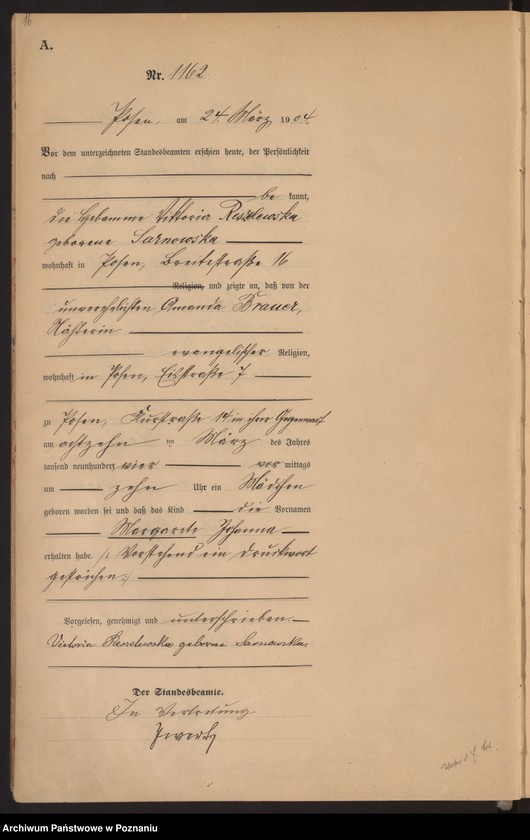 16
A.
Nr. 1162.
Posen, am 24. März 1904.
Vor dem unterzeichneten Standesbeamten erschien heute, der Persönlichkeit
nach
be kannt,
die Hebamme Viktoria Reszlewska
geborene Sarnowska
wohnhaft in Posen, Breitestraße 16
Religion, und zeigte an, daß von der
unverehelichten Amanda Brauer,
Näherin
evangelischer Religion,
wohnhaft in Posen, Eisstraße 7
zu Posen, Kurstraße 14 in ihrer Gegenwart
am achtzehn im März des Jahres
tausend neunhundert vier vor mittags
um zehn Uhr ein Mädchen
geboren worden sei und daß das Kind die Vornamen
Margarete Johanna
erhalten habe. /: Vorstehend ein Druckwort
gestrichen :/
Vorgelesen, genehmigt und unterschrieben.
Victoria geborne Sarnowska.
Der Standesbeamte.
In Vertretung
Archiwum Państwowe w Poznaniu